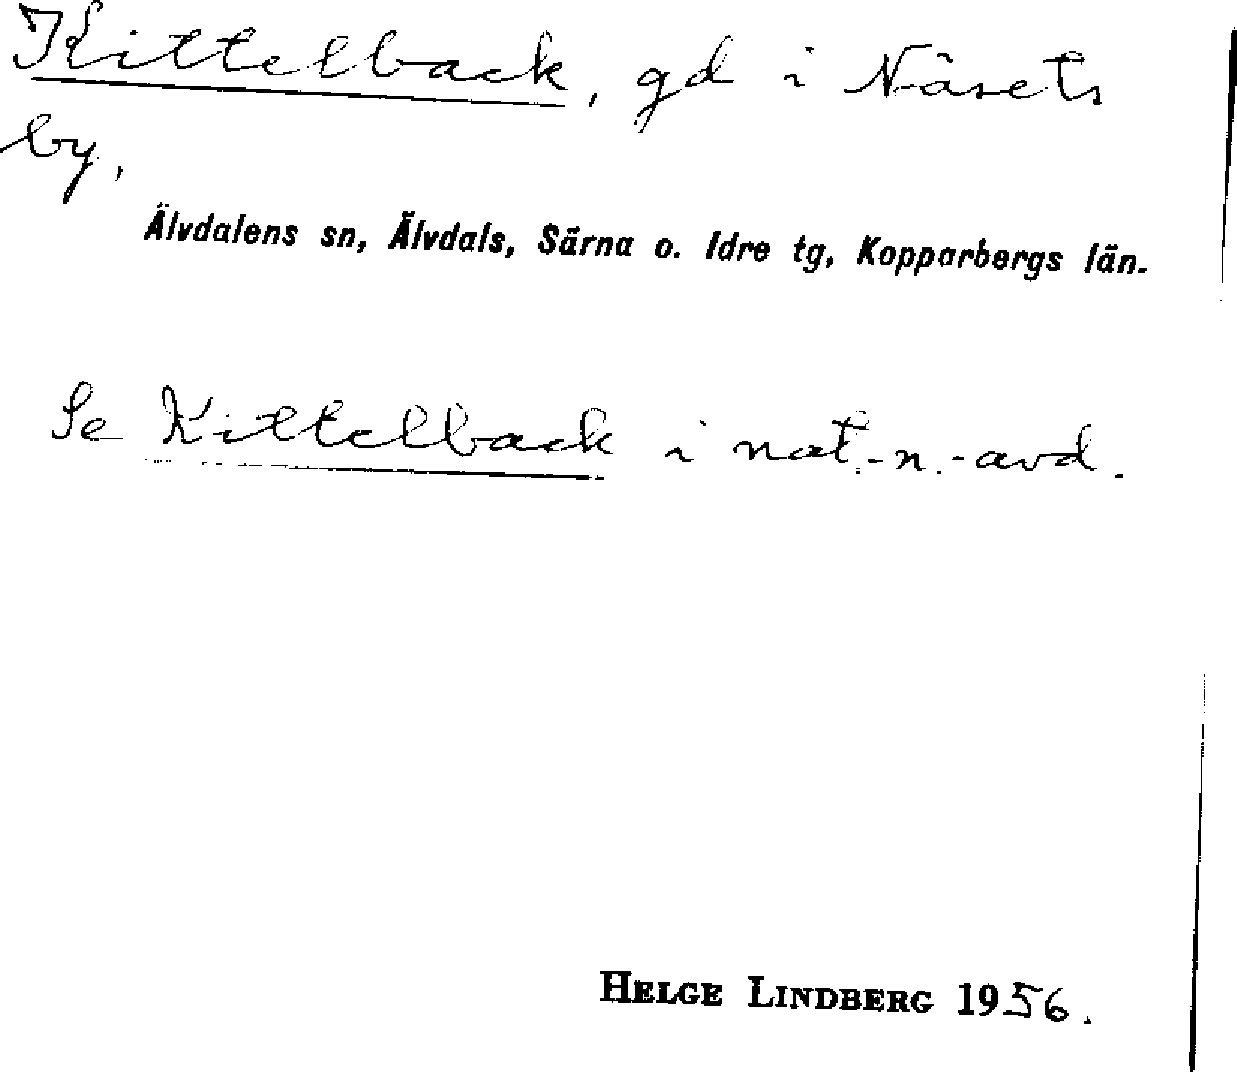 Kittelback, gd i Näsets
by,
Älvdalens sn, Älvdals, Särna o. Idre tg, Kopparbergs län.
Se Kittelback i nat.-n.-avd.
HELGE LINDBERG 1956.